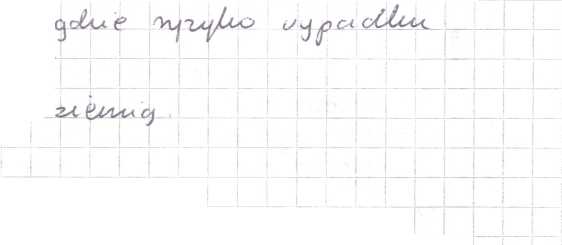 gdzie ryzyko wypadku
ziemią.